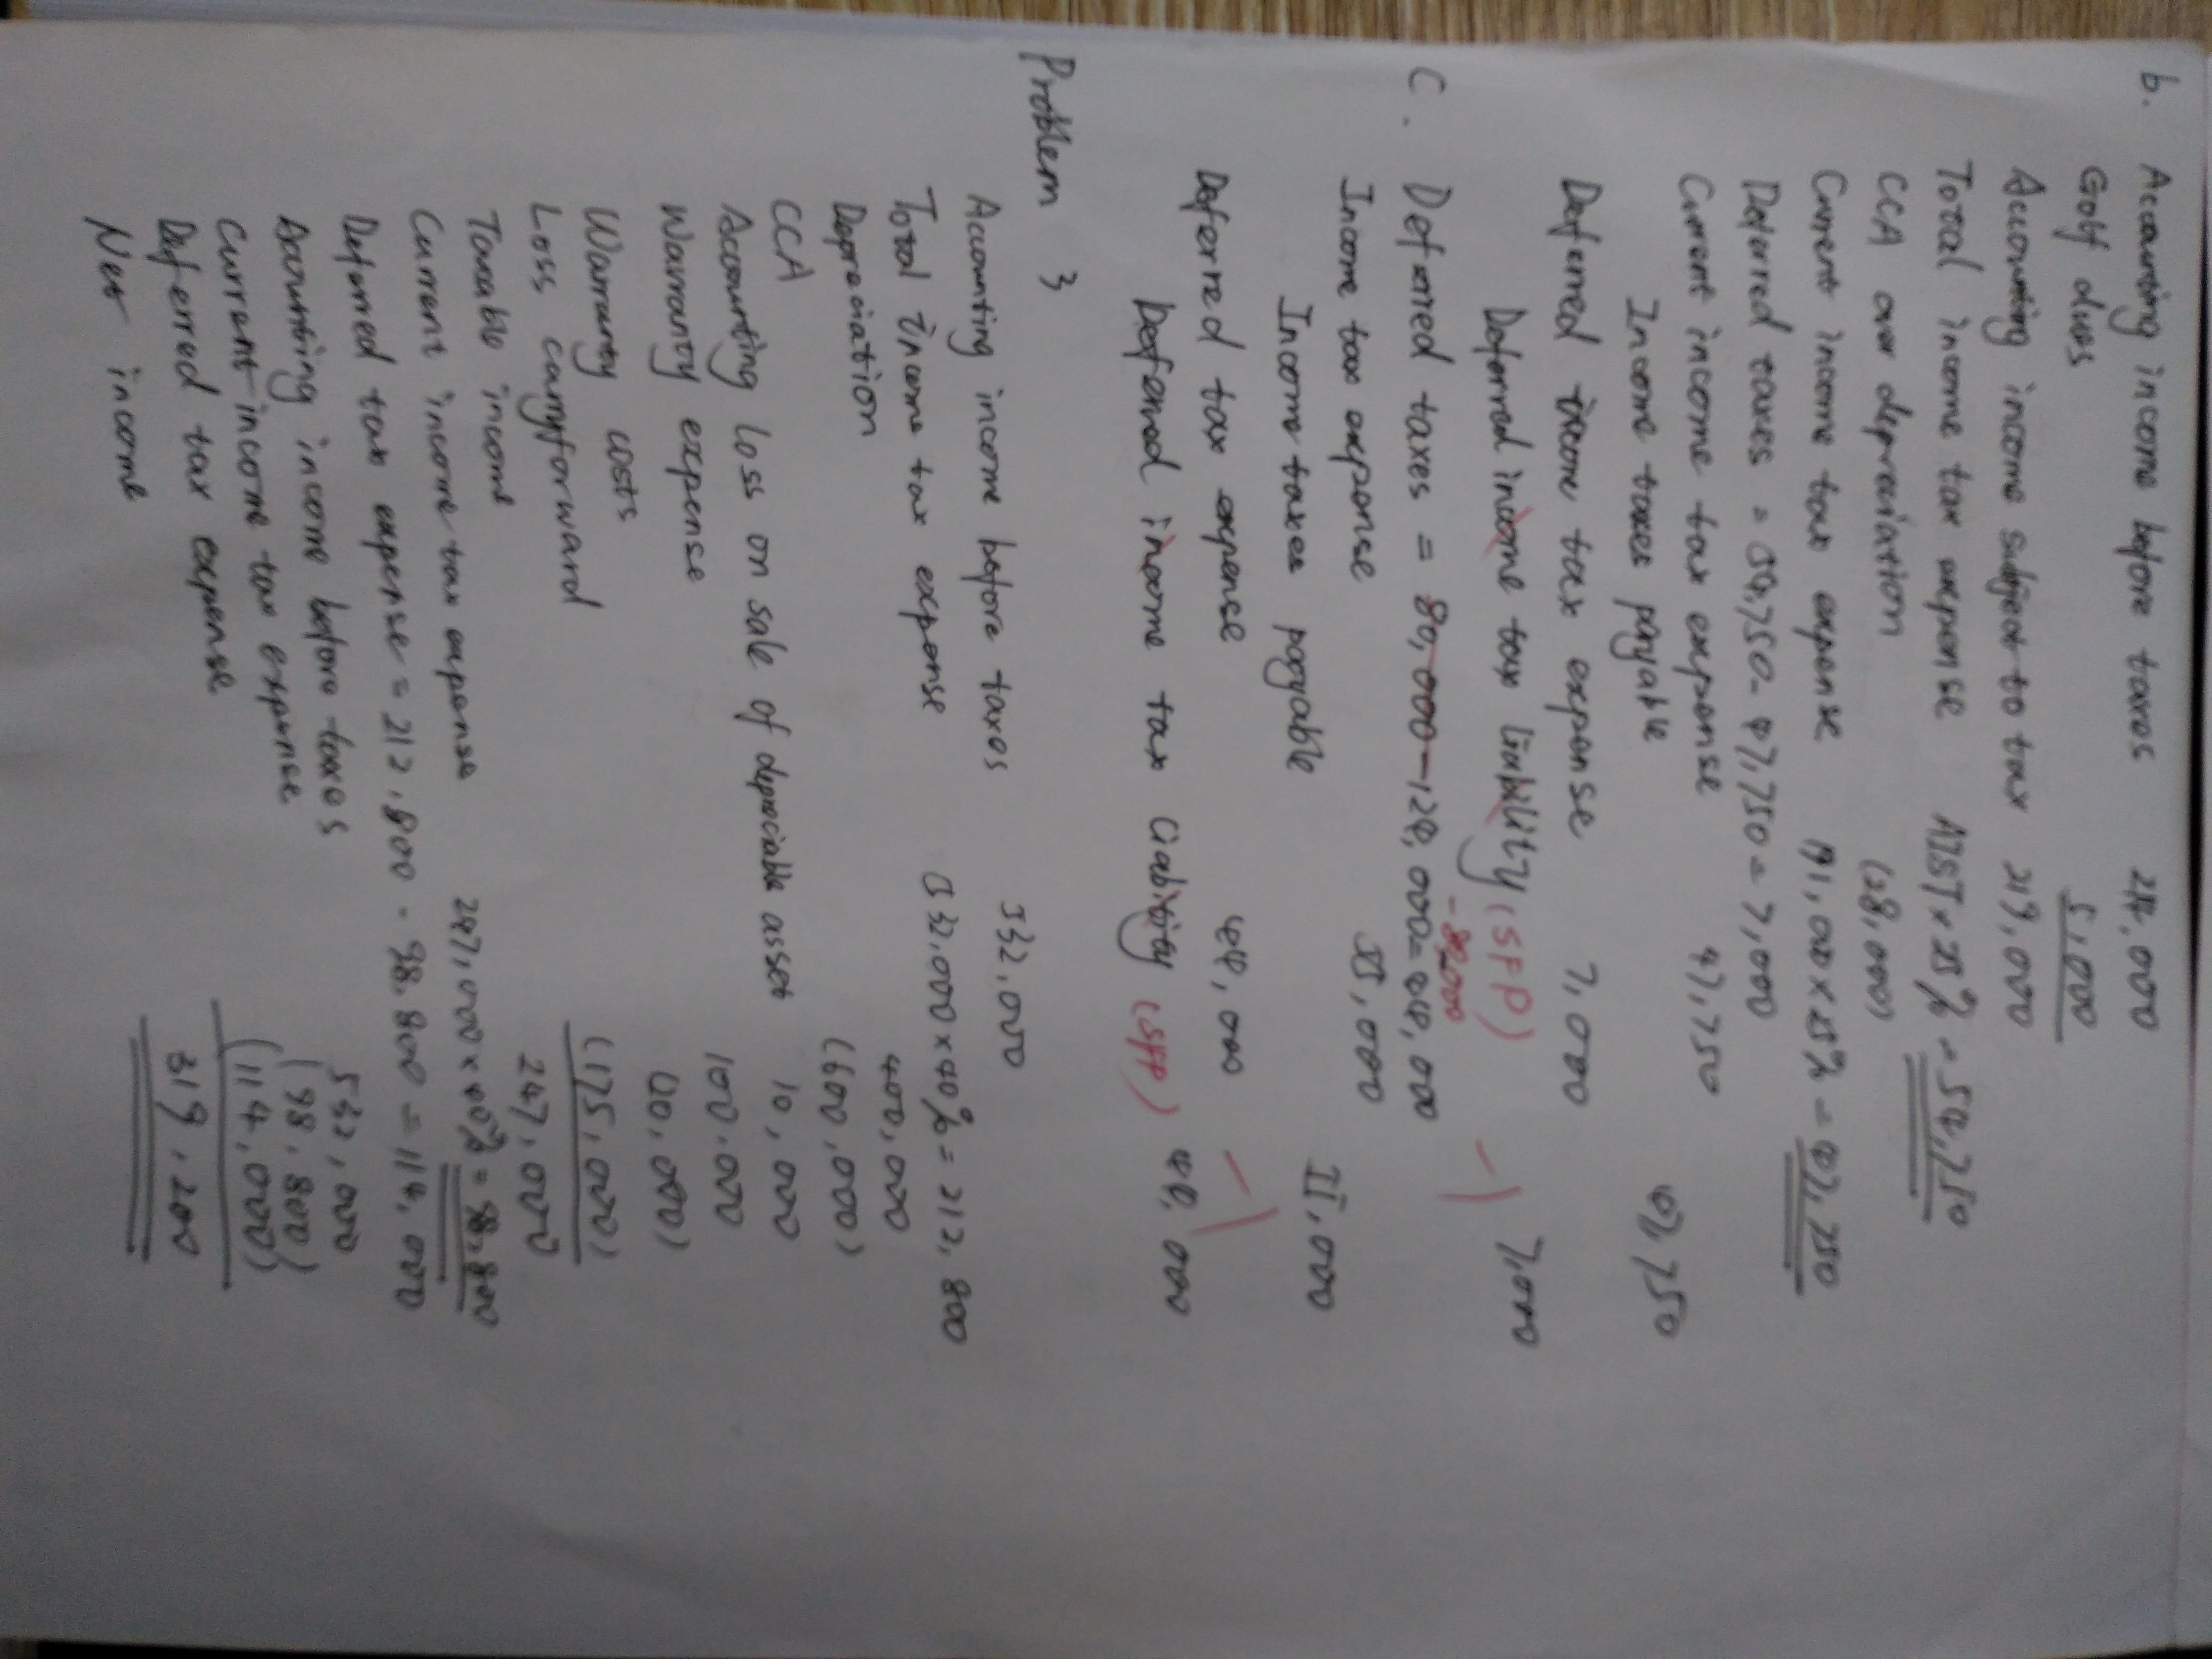 b. Accounting income before taxes 214,000
Golf dues 5,000
Accounting income subject to tax 219,000
Total income tax expense AIST × 25% = 54,750
CCA over depreciation (28,000)
Current income tax expense 191,000 × 25% = 47,750
Deferred taxes = 54,750 - 47,750 = 7,000
Current income tax expense 47,750
Income taxes payable 47,750
Deferred income tax expense 7,000
Deferred income tax liability (SFP) -1 7,000
-80,000
C. Deferred taxes = 80,000 - 124,000 = 44,000
Income tax expense 55,000
Income taxes payable 55,000
Deferred tax expense 44,000 -1
Deferred income tax liability (SFP) 44,000
Problem 3
Accounting income before taxes 532,000
Total income tax expense 532,000 × 40% = 212,800
Depreciation 400,000
CCA (600,000)
Accounting loss on sale of depreciable asset 10,000
Warranty expense 100,000
Warranty costs (20,000)
Loss carryforward (175,000)
Taxable income 247,000
Current income tax expense 247,000 × 40% = 98,800
Deferred tax expense = 212,800 - 98,800 = 114,000
Accounting income before taxes 532,000
Current income tax expense (98,800)
Deferred tax expense (114,000)
Net income 319,200